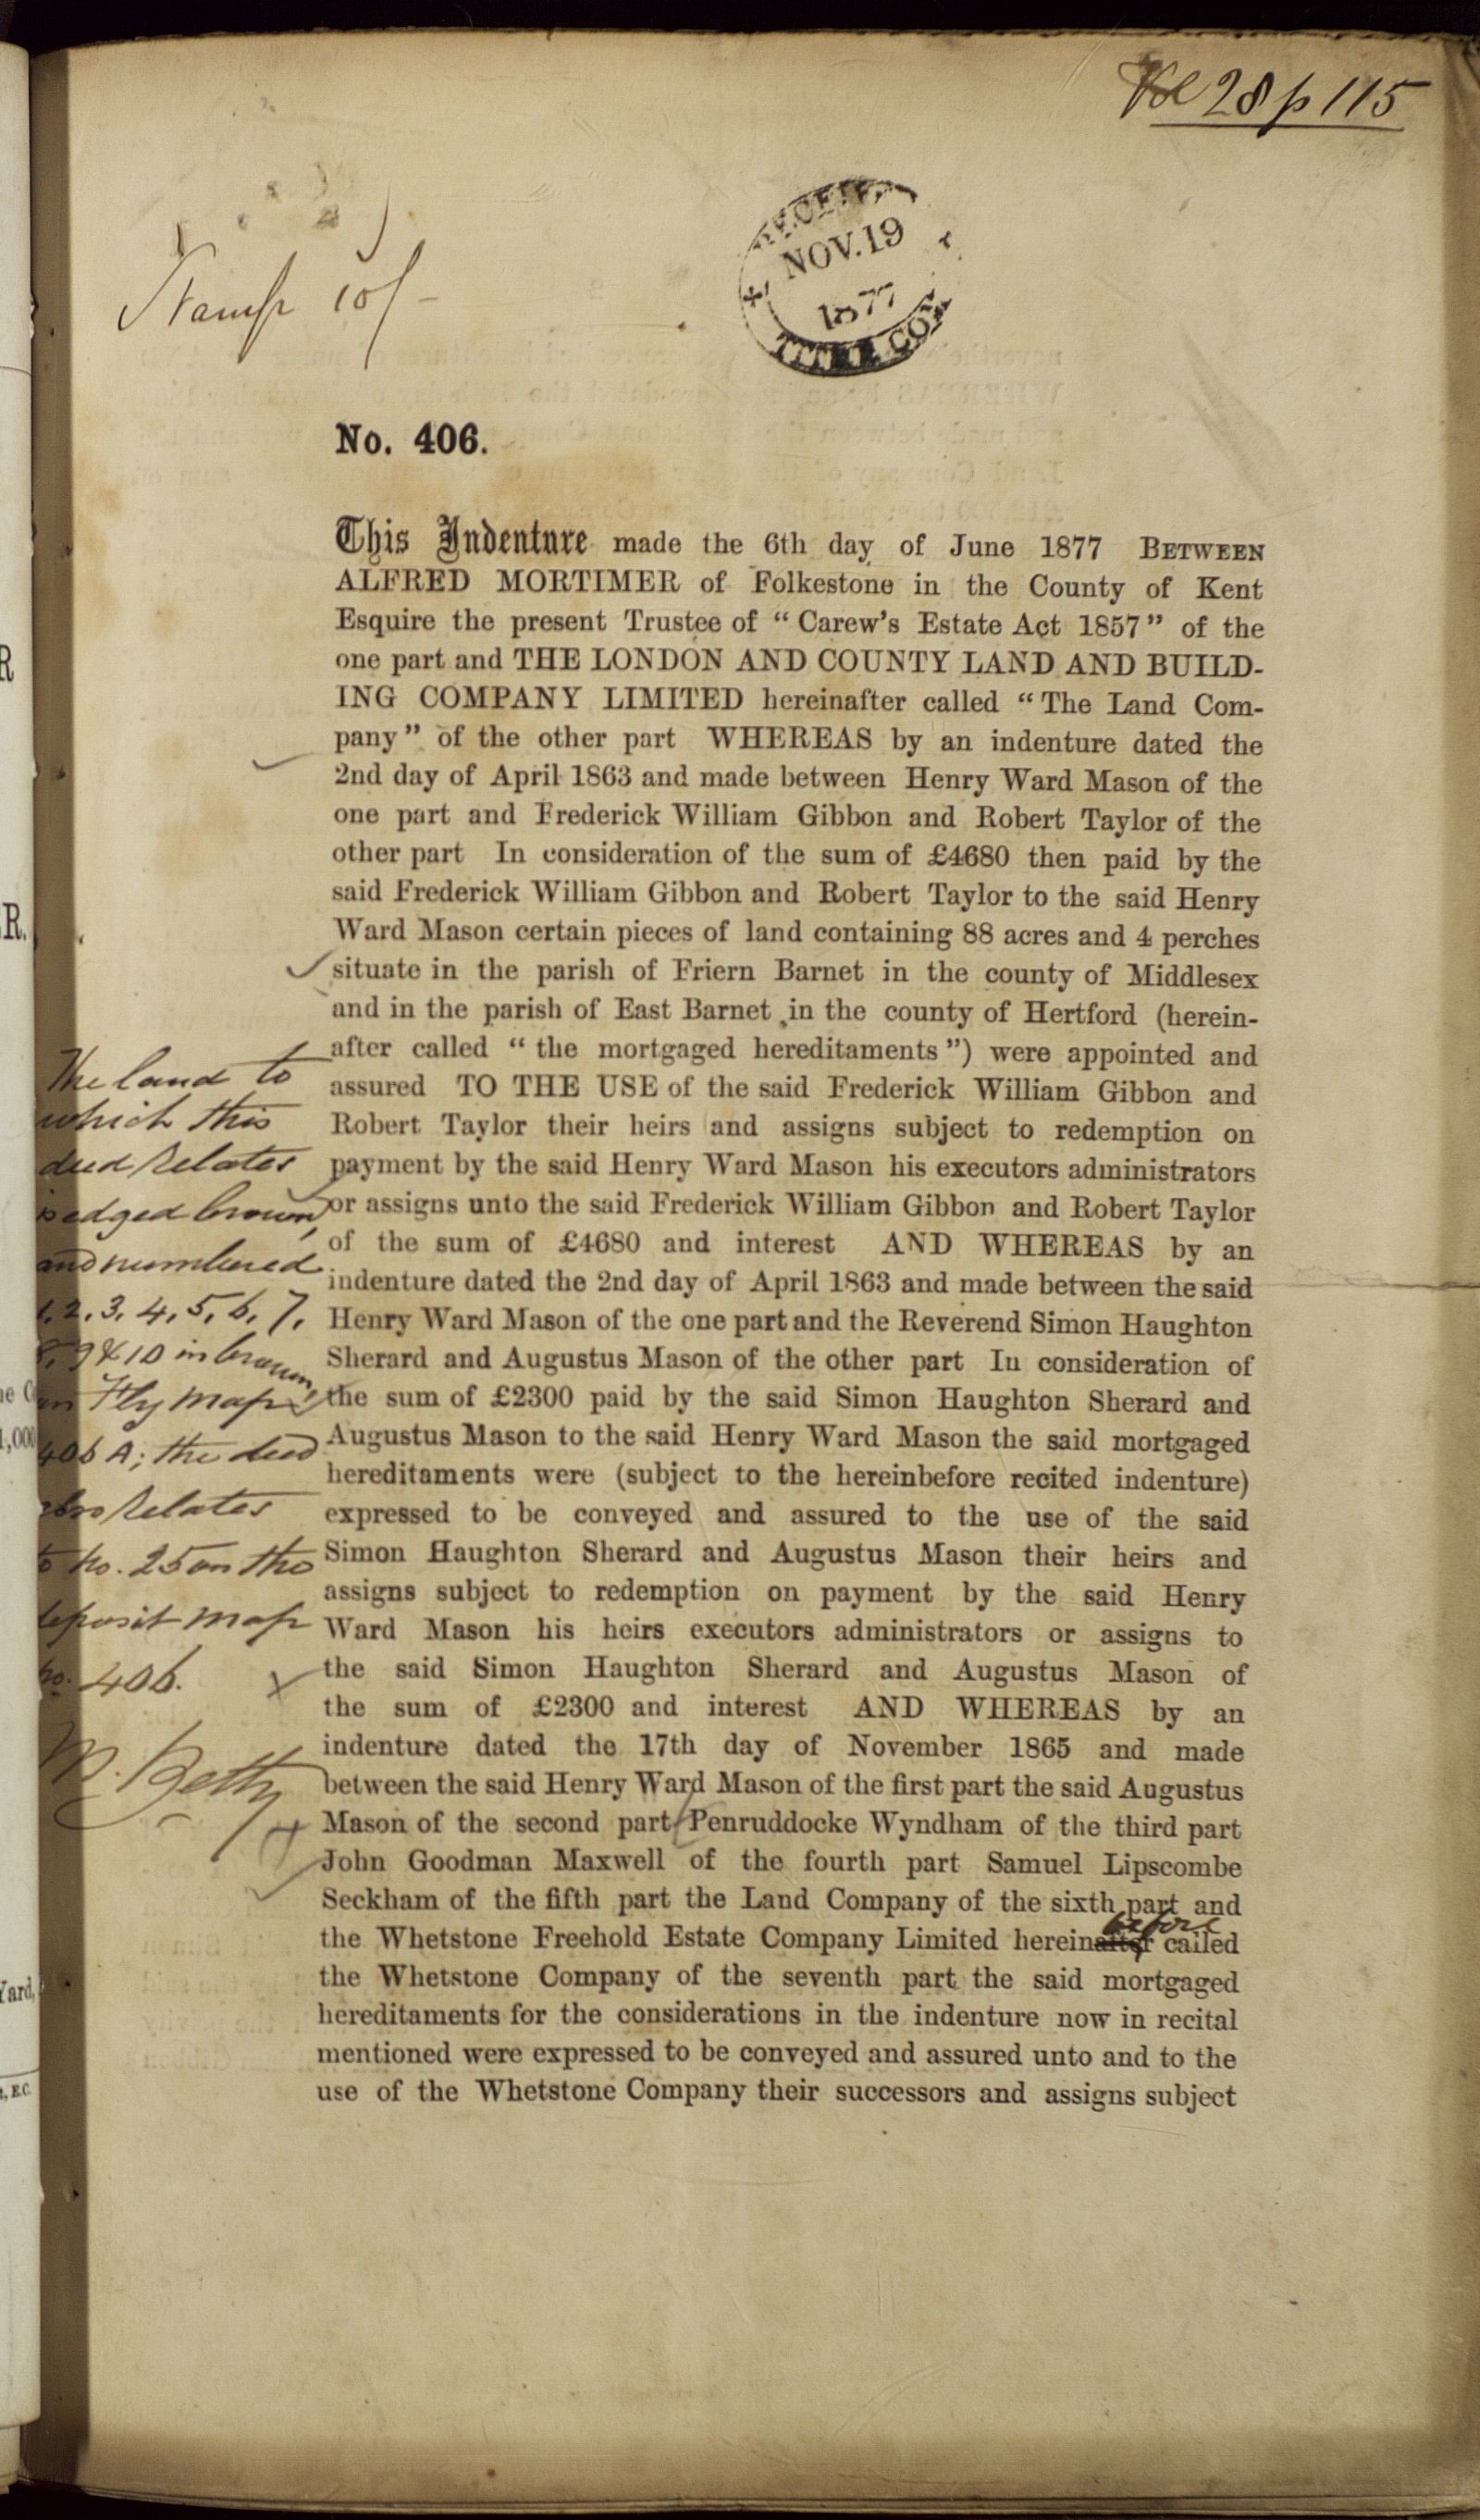 Vol 28 p 115
Stamp 10/-
NOV. 19
1877
No. 406.
This Indenture made the 6th day of June 1877 BETWEEN
ALFRED MORTIMER of Folkestone in the County of Kent
Esquire the present Trustee of “ Carew’s Estate Act 1857 ” of the
one part and THE LONDON AND COUNTY LAND AND BUILD-
ING COMPANY LIMITED hereinafter called “ The Land Com-
pany ” of the other part WHEREAS by an indenture dated the
2nd day of April 1863 and made between Henry Ward Mason of the
one part and Frederick William Gibbon and Robert Taylor of the
other part In consideration of the sum of £4680 then paid by the
said Frederick William Gibbon and Robert Taylor to the said Henry
Ward Mason certain pieces of land containing 88 acres and 4 perches
situate in the parish of Friern Barnet in the county of Middlesex
and in the parish of East Barnet in the county of Hertford (herein-
after called “ the mortgaged hereditaments ”) were appointed and
assured TO THE USE of the said Frederick William Gibbon and
Robert Taylor their heirs and assigns subject to redemption on
payment by the said Henry Ward Mason his executors administrators
or assigns unto the said Frederick William Gibbon and Robert Taylor
of the sum of £4680 and interest AND WHEREAS by an
indenture dated the 2nd day of April 1863 and made between the said
Henry Ward Mason of the one part and the Reverend Simon Haughton
Sherard and Augustus Mason of the other part In consideration of
the sum of £2300 paid by the said Simon Haughton Sherard and
Augustus Mason to the said Henry Ward Mason the said mortgaged
hereditaments were (subject to the hereinbefore recited indenture)
expressed to be conveyed and assured to the use of the said
Simon Haughton Sherard and Augustus Mason their heirs and
assigns subject to redemption on payment by the said Henry
Ward Mason his heirs executors administrators or assigns to
the said Simon Haughton Sherard and Augustus Mason of
the sum of £2300 and interest AND WHEREAS by an
indenture dated the 17th day of November 1865 and made
between the said Henry Ward Mason of the first part the said Augustus
Mason of the second part Penruddocke Wyndham of the third part
John Goodman Maxwell of the fourth part Samuel Lipscombe
Seckham of the fifth part the Land Company of the sixth part and
before
the Whetstone Freehold Estate Company Limited hereinafter called
the Whetstone Company of the seventh part the said mortgaged
hereditaments for the considerations in the indenture now in recital
mentioned were expressed to be conveyed and assured unto and to the
use of the Whetstone Company their successors and assigns subject
The land to
which this
deed relates
is edged brown,
and numbered
1, 2, 3, 4, 5, 6, 7,
8, 9 & 10 in brown,
on Fly map
406 A; the deed
also relates
to no. 25 on the
deposit map
no. 406.